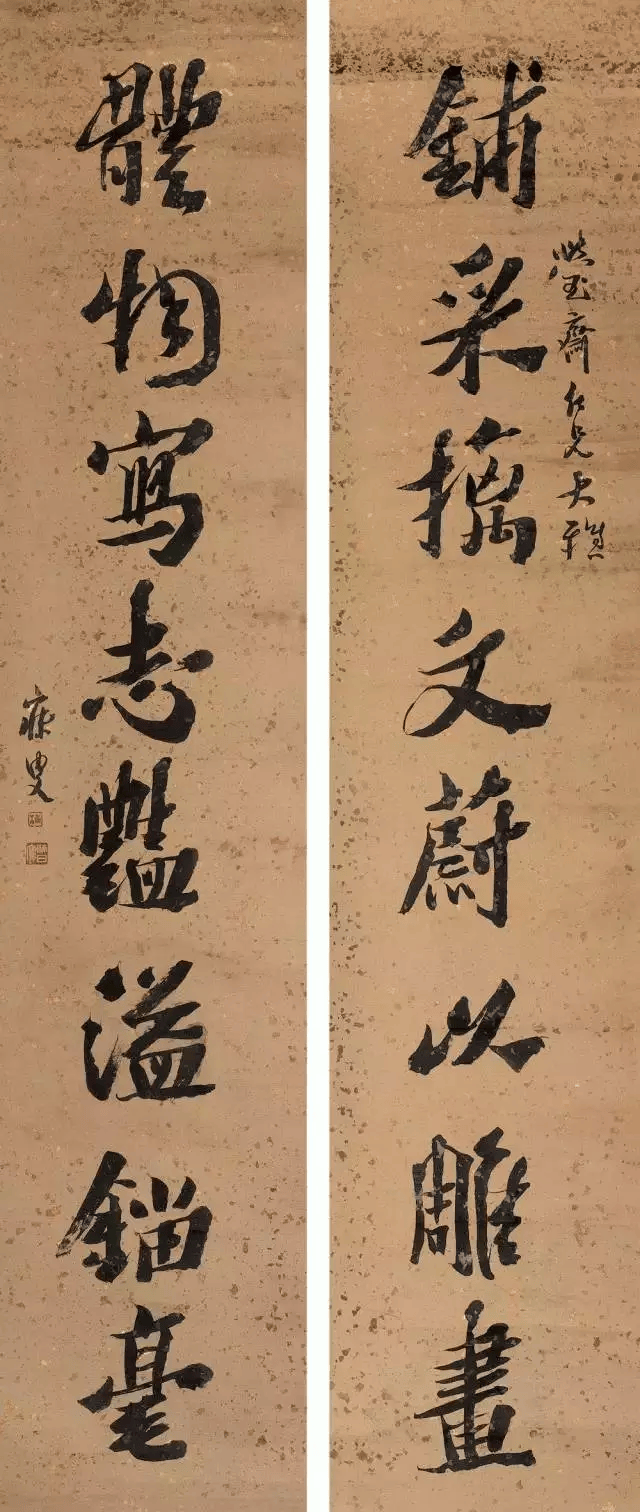 鋪采摛文蔚以雕畫
玉齋仁兄大雅
體物寫志豔溢錙毫
寐叟